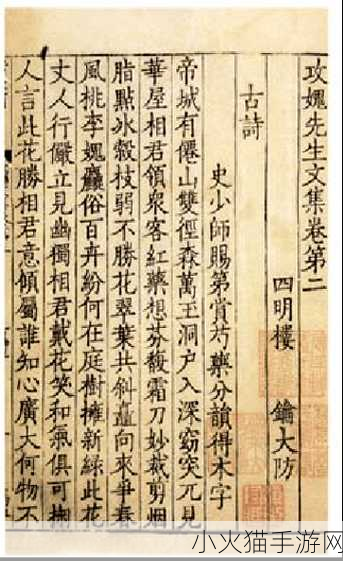 攻媿先生文集卷第二
四明樓 鑰大防
古詩
史少師賜第賞芍藥分韻得木字
帝城有僊山雙徑森萬玉洞户入深窈突兀見
華屋相君領衆客紅藥想芬馥霜刀妙裁剪烟
脂點冰縠枝弱不勝花翠葉共斜矗向來爭春
風桃李媿麤俗百卉紛何在庭樹擁新緑此花
丈人行儼立見幽獨相君戴花笑和氣俱可掬
人言此花勝相君意傾屬誰知心廣大何物不
小火猫手游网